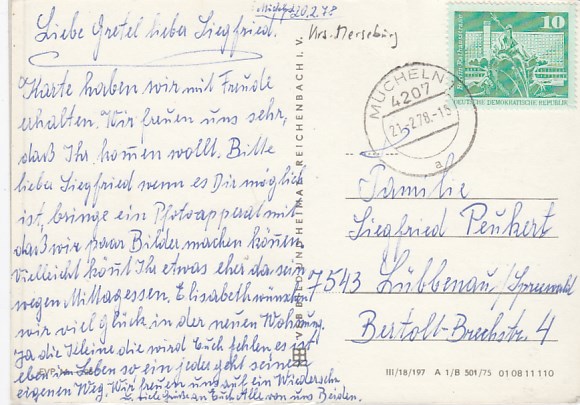 Mücheln 20.2.78
Liebe Gretel lieber Siegfried.
Krs. Merseburg
Karte haben wir mit Freude
erhalten. Wir freuen uns sehr,
daß Ihr kommen wollt. Bitte
lieber Siegfried wenn es Dir möglich
ist, bringe ein Photoapperat mit
daß wir paar Bilder machen können
vielleicht könnt Ihr etwas eher da sein
wegen Mittagessen. Elisabeth wünschen
wir viel Glück in der neuen Wohnung.
Ja die Kleine die wird Euch fehlen es ist
eben im Leben so ein jeder geht seinen
eigenen Weg. Wir freuen uns auf ein Wiedersehn
u. viele Grüße an Euch Alle von uns Beiden.
VEB BILD UND HEIMAT REICHENBACH I. V.
10
DEUTSCHE DEMOKRATISCHE REPUBLIK
MÜCHELN
4207
21.-2.78.-15
a
Familie
Siegfried Peukert
7543 Lübbenau/Spreewald
Bertolt-Brechtstr. 4
III/18/197 A 1/B 501/75 01 08 11 110